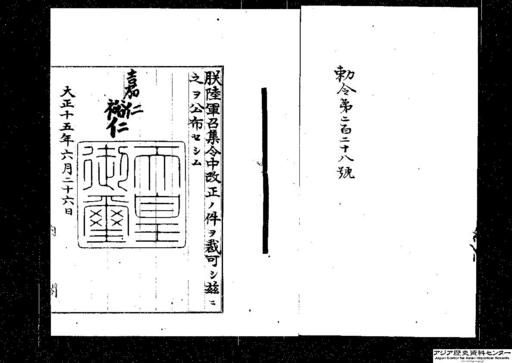 勅令第二百二十八號
朕陸軍召集令中改正ノ件ヲ裁可シ茲ニ
之ヲ公布セシム
嘉仁
裕仁
天皇
御璽
大正十五年六月二十六日
内閣
アジア歴史資料センター
Japan Center for Asian Historical Records